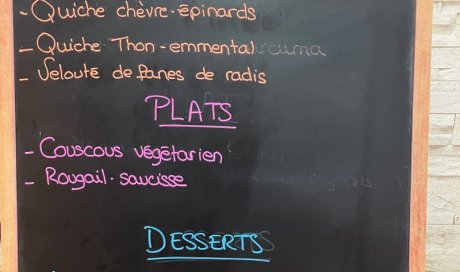 - Quiche chèvre-épinards
- Quiche Thon-emmental
- Velouté de fanes de radis
PLATS
- Couscous végétarien
- Rougail-saucisse
DESSERTS